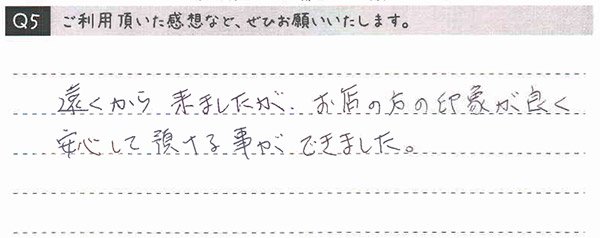 Q5 ご利用頂いた感想など、ぜひお願いいたします。
遠くから来ましたが、お店の方の印象が良く
安心して預ける事ができました。